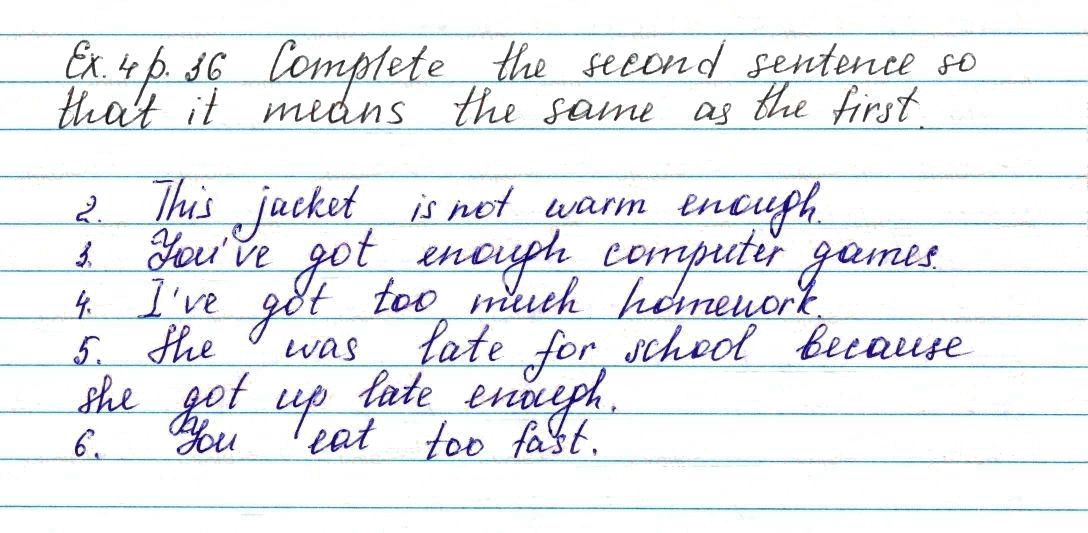 Ex. 4 p. 36 Complete the second sentence so
that it means the same as the first.
2. This jacket is not warm enough.
3. You've got enough computer games.
4. I've got too much homework.
5. She was late for school because
she got up late enough.
6. You eat too fast.